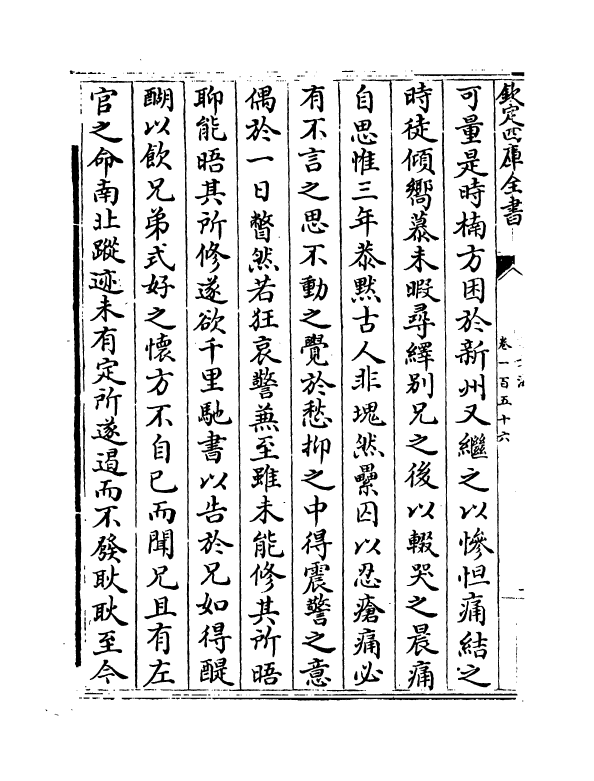 欽定四庫全書
卷一百五十六
可量是時楠方困於新州又繼之以慘怛痛結之
時徒傾嚮慕未暇尋繹別兄之後以輟哭之晨痛
自思惟三年恭默古人非塊然纍囚以忍瘡痛必
有不言之思不動之覺於愁抑之中得震警之意
偶於一日瞥然若狂哀警兼至雖未能修其所晤
聊能晤其所修遂欲千里馳書以告於兄如得醍
醐以飲兄弟式好之懷方不自已而聞兄且有左
官之命南北蹤迹未有定所遂遏而不發耿耿至今